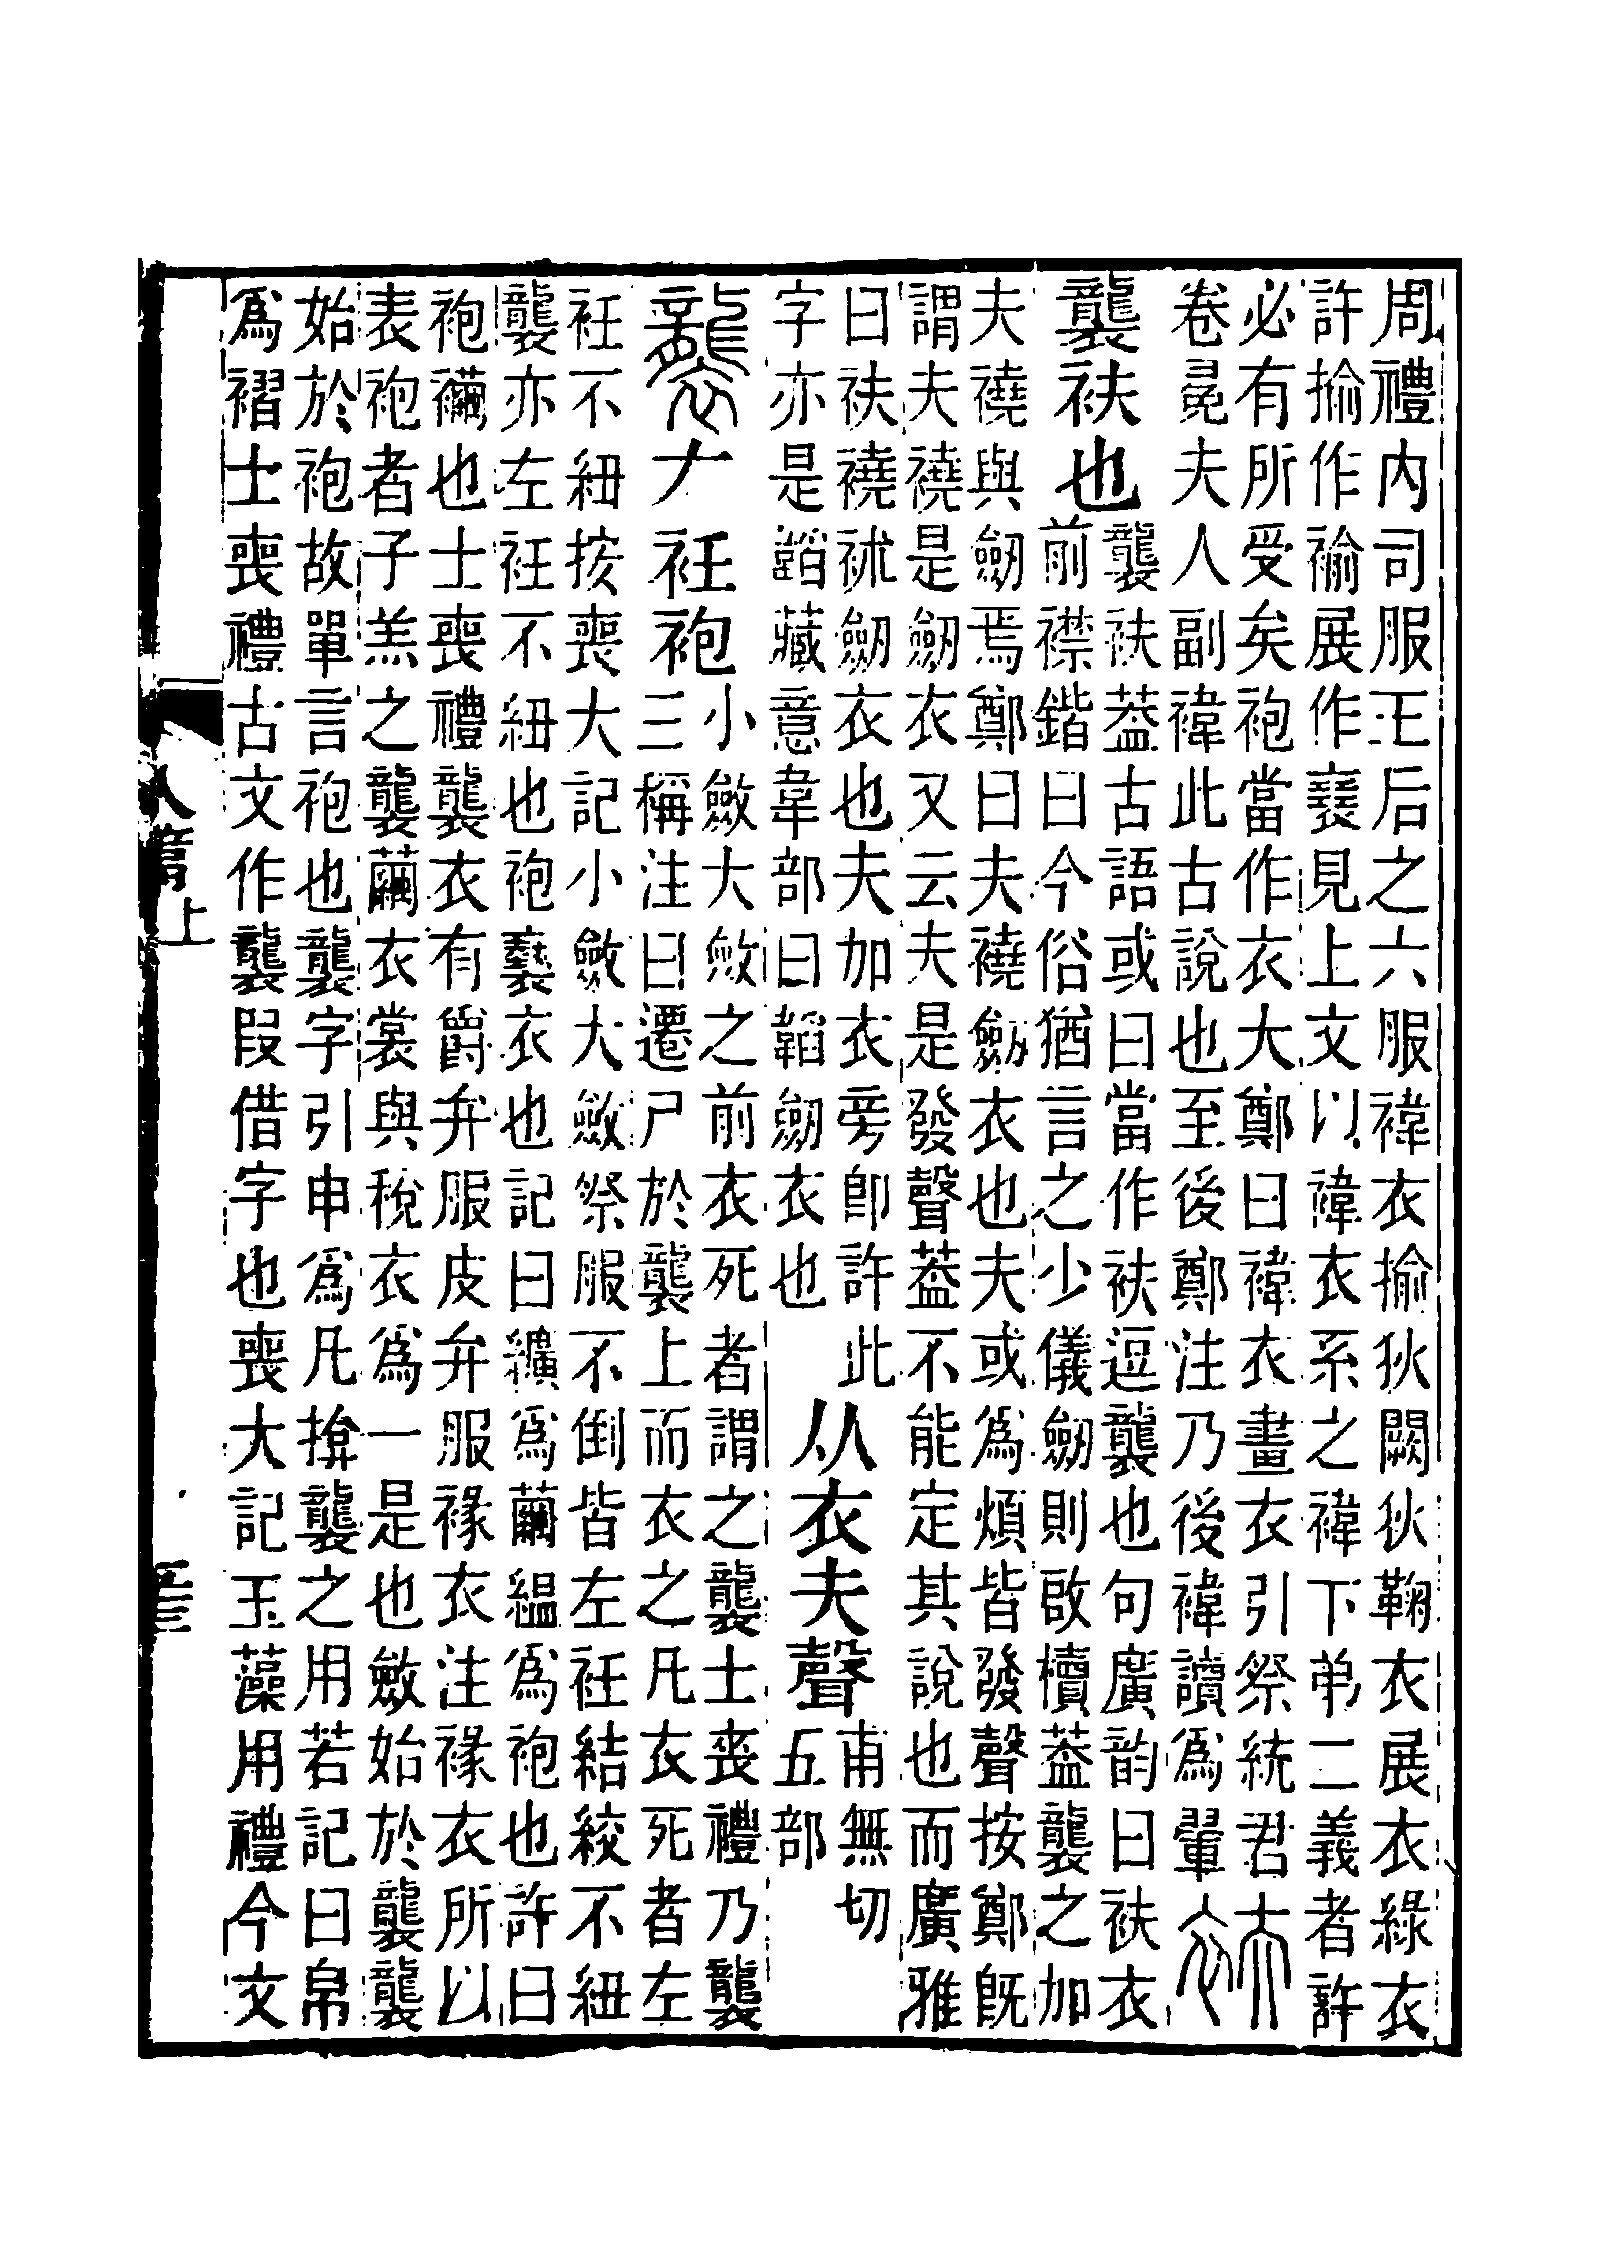 周禮內司服王后之六服褘衣揄狄闕狄鞠衣展衣綠衣
許揄作褕展作襄見上文以褘衣系之褘下弟二義者許
必有所受矣袍當作衣大鄭曰褘衣畫衣引祭統君
卷冕夫人副褘此古說也至後鄭注乃後褘讀爲翬
襲袂也
襲袂葢古語或曰當作袂逗襲也句廣韵曰袂衣
前襟鍇曰今俗猶言之少儀劒則啟櫝葢襲之加
夫襓與劒焉鄭曰夫襓劒衣也夫或爲煩皆發聲按鄭旣
謂夫襓是劒衣又云夫是發聲葢不能定其說也而廣雅
曰袂襓袱劒衣也夫加衣旁卽許此
字亦是韜藏意韋部曰韜劒衣也
从衣夫聲
甫無切
五部
襲ナ衽袍
小斂大斂之前衣死者謂之襲士喪禮乃襲
三稱注曰遷尸於襲上而衣之凡衣死者左
衽不紐按喪大記小斂大斂祭服不倒皆左衽結絞不紐
襲亦左衽不紐也袍褻衣也記曰纊爲繭縕爲袍也許曰
袍襺也士喪禮襲衣有爵弁服皮弁服褖衣注褖衣所以
表袍者子羔之襲繭衣裳與稅衣爲一是也斂始於襲襲
始於袍故單言袍也襲字引申爲凡揜襲之用若記曰帛
爲褶士喪禮古文作襲叚借字也喪大記玉藻用禮今文
八篇上